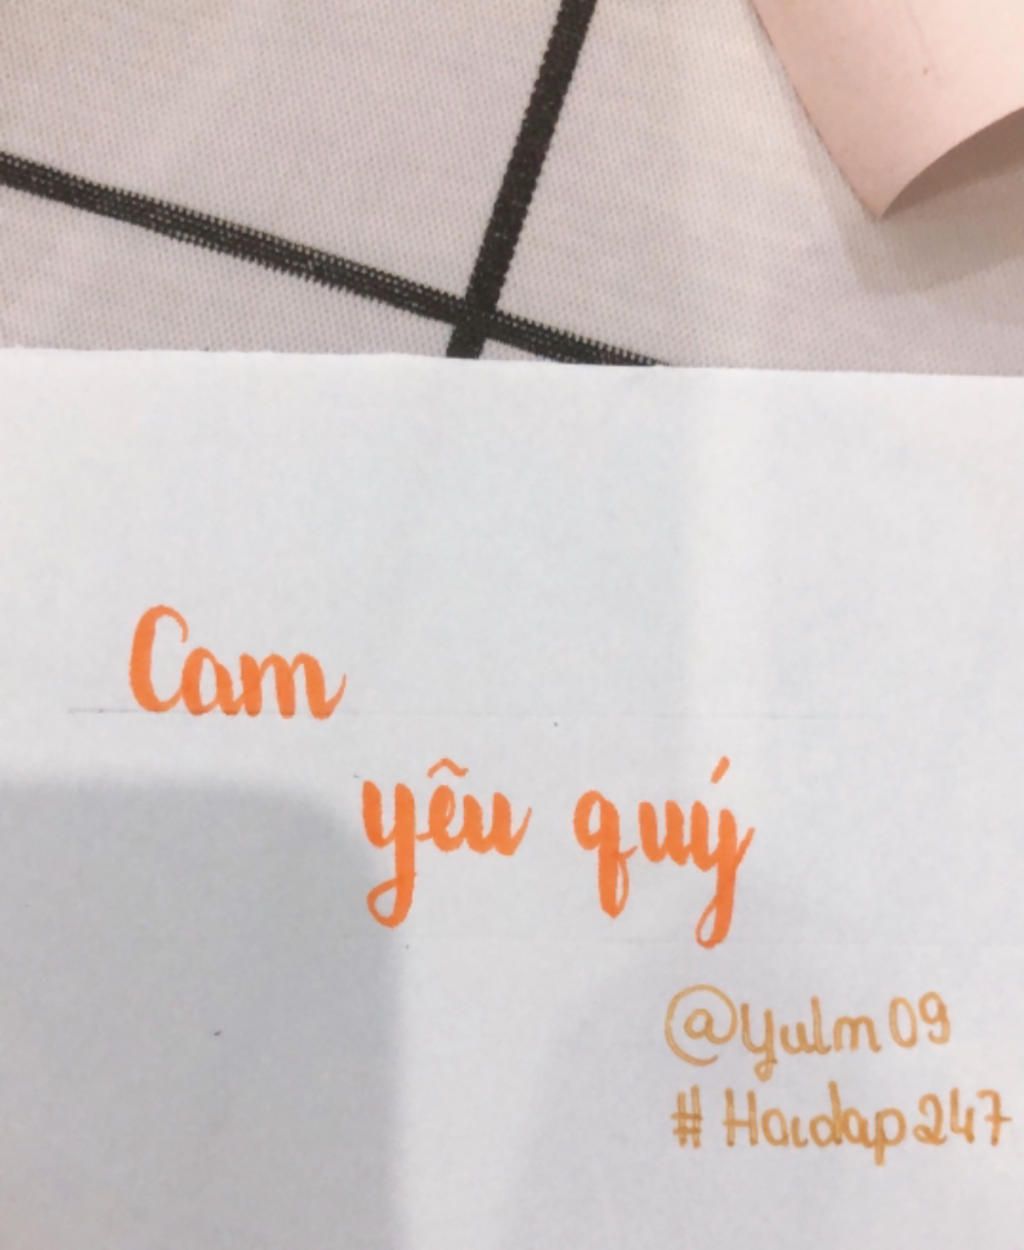 Cam
yêu quý
@yulm09
#Hoidap247